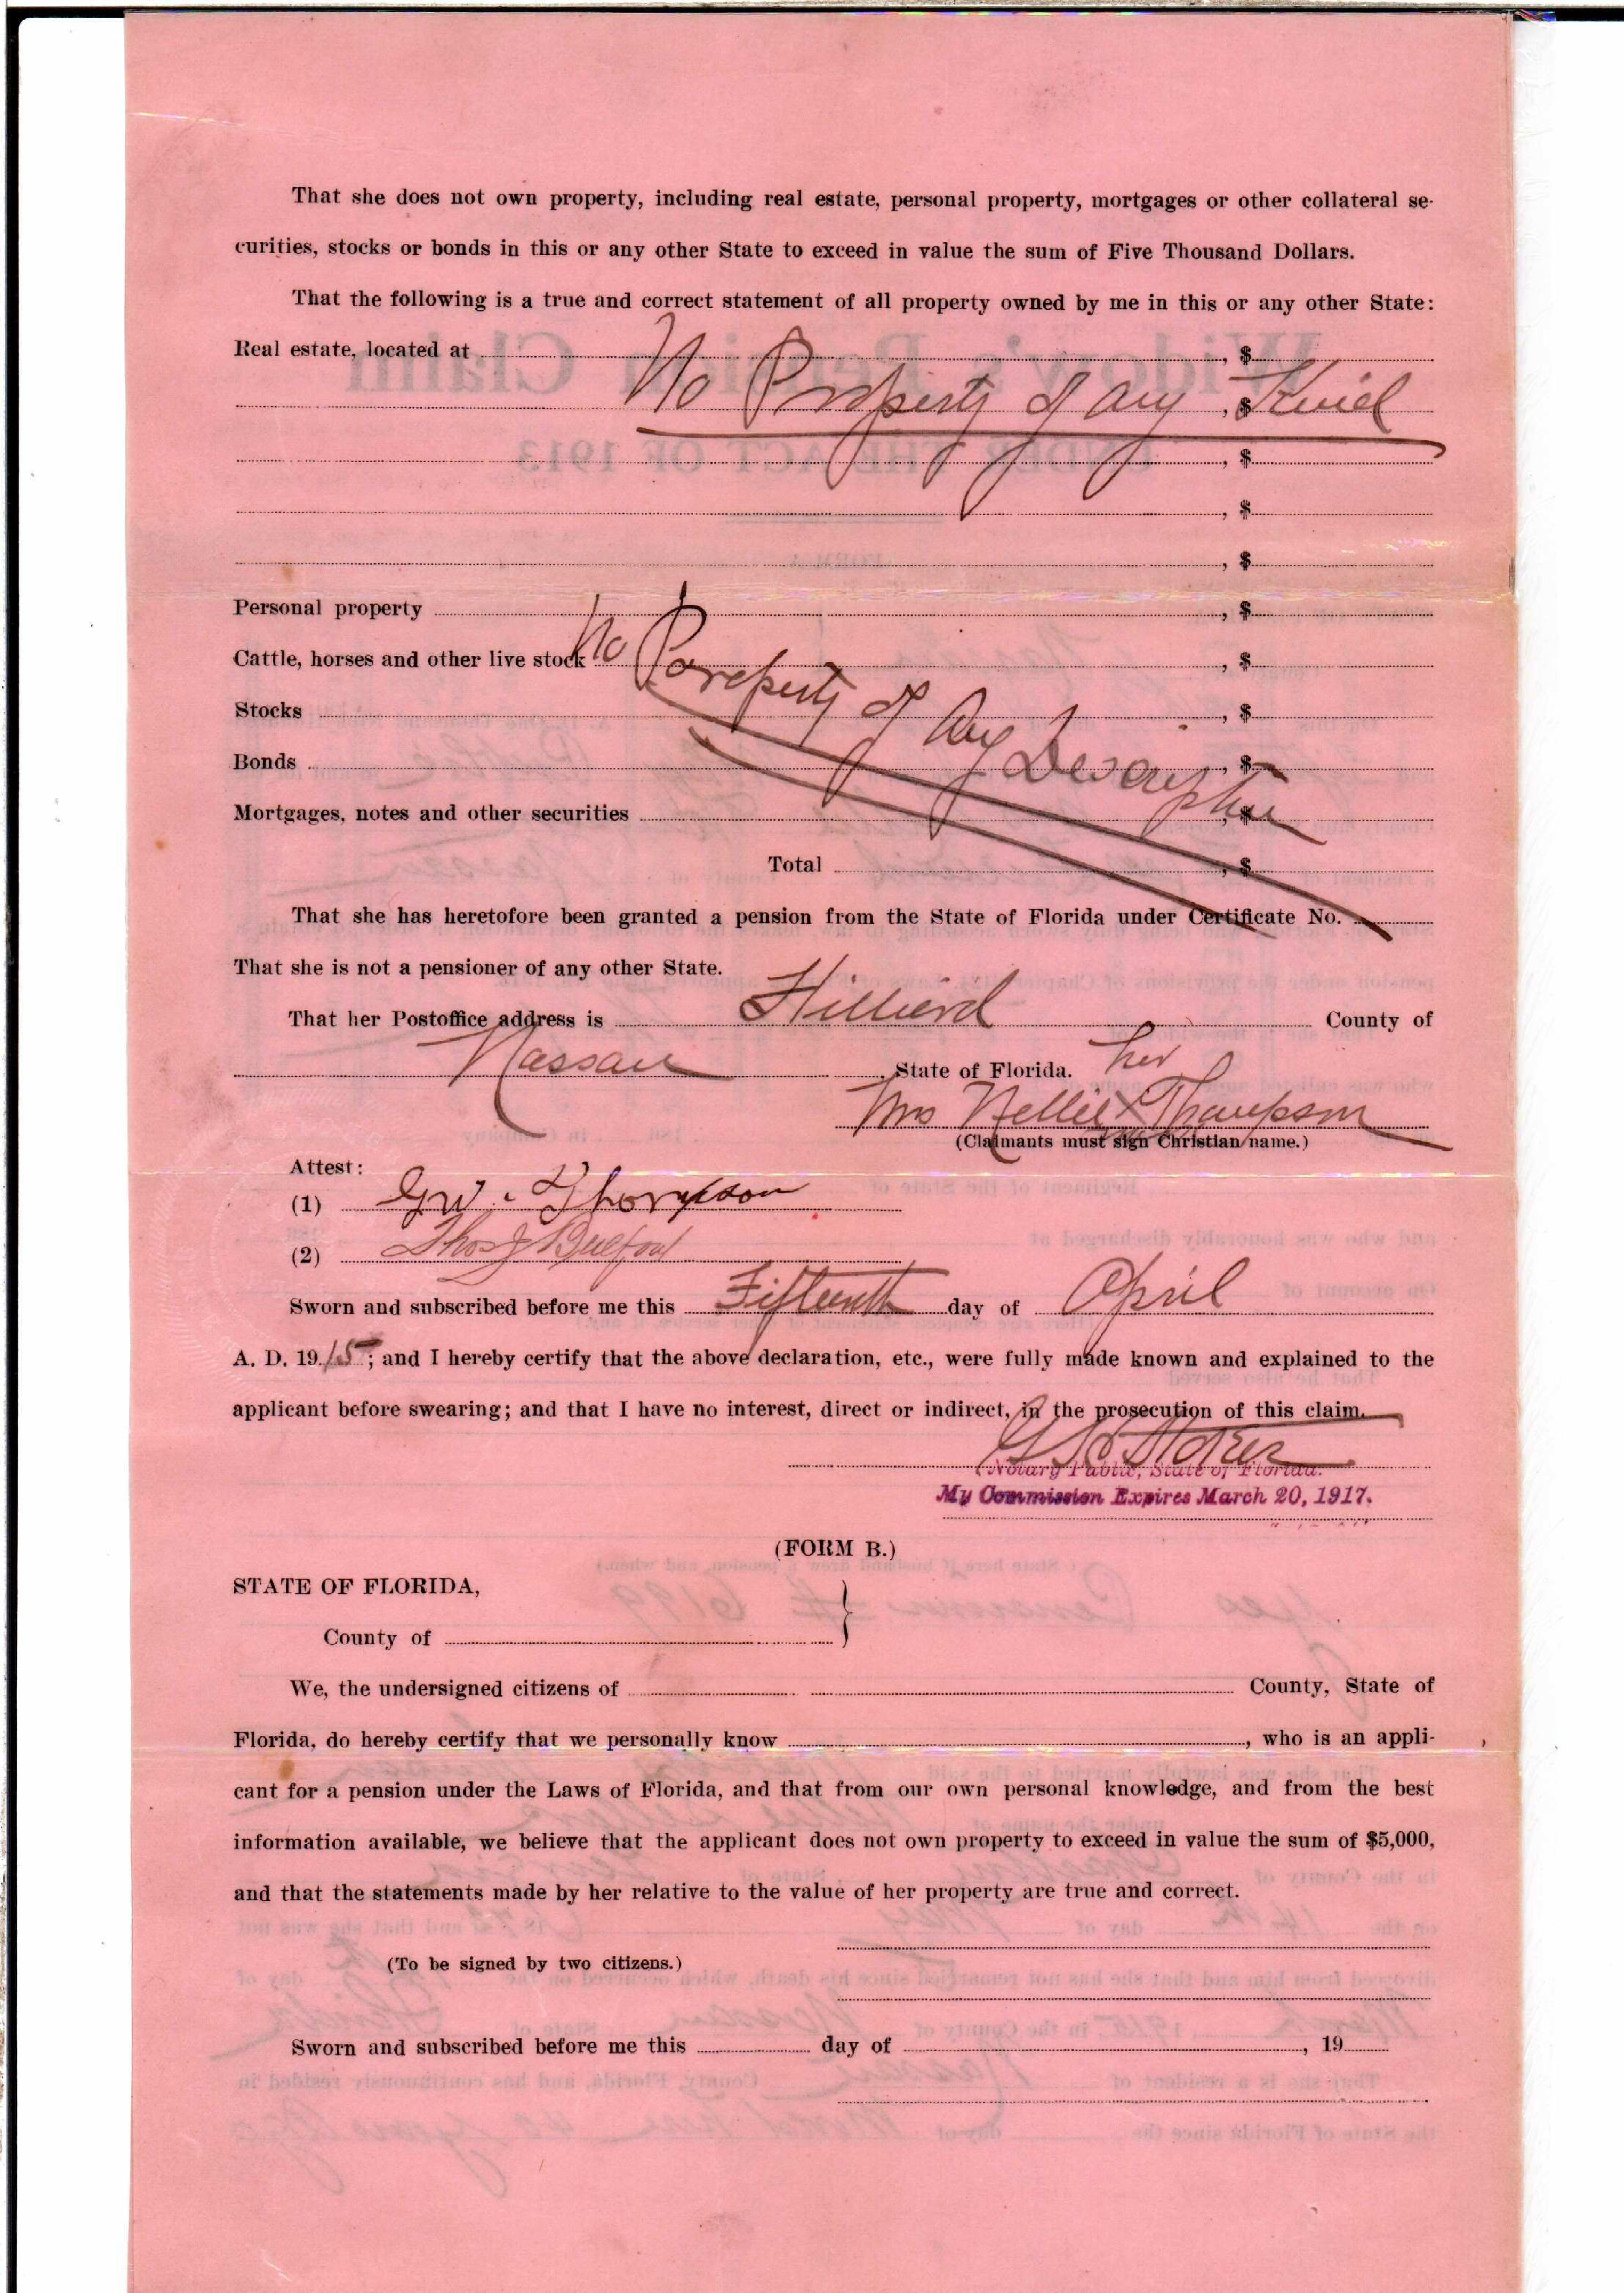 That she does not own property, including real estate, personal property, mortgages or other collateral se-
curities, stocks or bonds in this or any other State to exceed in value the sum of Five Thousand Dollars.
That the following is a true and correct statement of all property owned by me in this or any other State:
Real estate, located at , $
No Property of any , $ Kind
, $
, $
, $
Personal property , $
Cattle, horses and other live stock , $
No Poreperty of Any
Stocks , $
Bonds , $
Mortgages, notes and other securities , $
Total , $
That she has heretofore been granted a pension from the State of Florida under Certificate No.
That she is not a pensioner of any other State.
That her Postoffice address is Hilliard County of
Nassau , State of Florida. her
Mrs Nellie X Thompson
(Claimants must sign Christian name.)
Attest:
(1) G W. Thompson
(2) Thos J
Sworn and subscribed before me this Fifteenth day of April
A. D. 1915; and I hereby certify that the above declaration, etc., were fully made known and explained to the
applicant before swearing; and that I have no interest, direct or indirect, in the prosecution of this claim.
Notary Public, State of Florida.
My Commission Expires March 20, 1917.
(FORM B.)
STATE OF FLORIDA,
County of }
We, the undersigned citizens of County, State of
Florida, do hereby certify that we personally know , who is an appli-
cant for a pension under the Laws of Florida, and that from our own personal knowledge, and from the best
information available, we believe that the applicant does not own property to exceed in value the sum of $5,000,
and that the statements made by her relative to the value of her property are true and correct.
(To be signed by two citizens.)
Sworn and subscribed before me this day of , 19